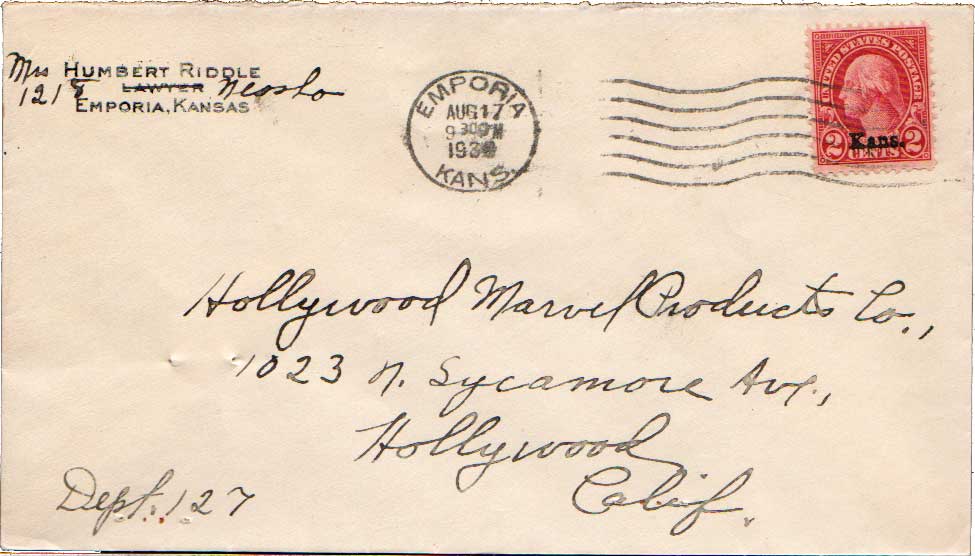 Mrs HUMBERT RIDDLE
LAWYER
1218 Neosho
EMPORIA, KANSAS
EMPORIA
AUG 17
9 30 PM
KANS.
UNITED STATES POSTAGE
Kans.
2 CENTS 2
Hollywood Marvel Products Co.,
1023 N. Sycamore Ave.,
Hollywood
Calif.
Dept. 127